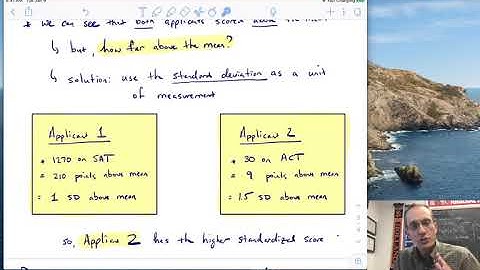 * we can see that both applicants scored above the mean
↳ but, how far above the mean?
↳ solution: use the standard deviation as a unit
of measurement
Applicant 1
* 1270 on SAT
= 210 points above mean
= 1 SD above mean
Applicant 2
* 30 on ACT
= 9 points above mean
= 1.5 SD above mean
so, Applicant 2 has the higher standardized score